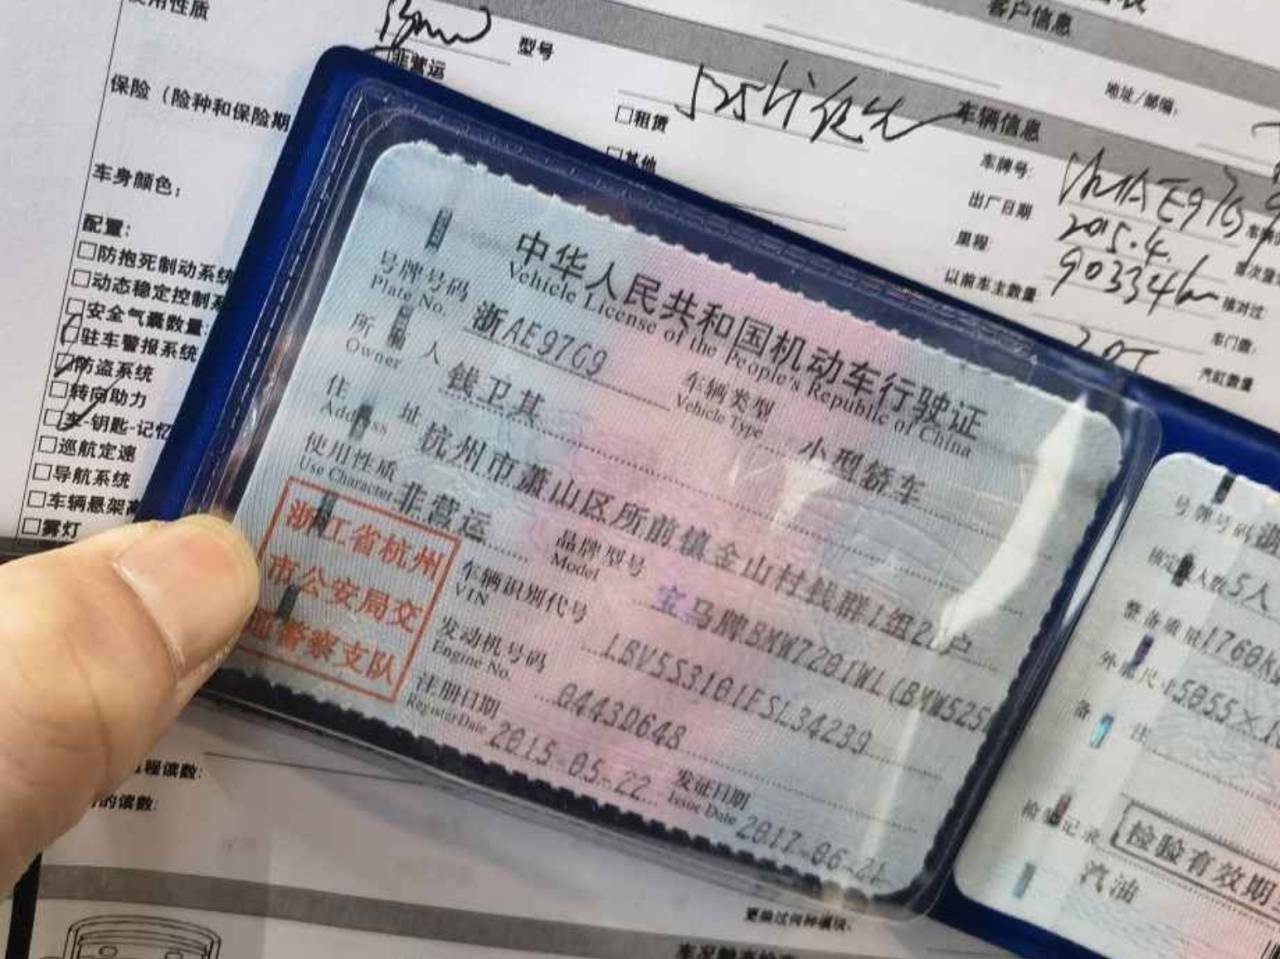 使用性质
型号
非营运
客户信息
地址/邮编:
保险（险种和保险期
□租赁
525Li 领先
车辆信息
□其他
车牌号:
车身颜色:
出厂日期
2015.4.
里程:
90334km
以前车主数量
核对过
车门数:
汽缸数量
配置:
□防抱死制动系统
□动态稳定控制系
□安全气囊数量:
□驻车警报系统
□防盗系统
□转向助力
□车-钥匙-记忆
□巡航定速
□导航系统
□车辆悬架高
□雾灯
中华人民共和国机动车行驶证
Vehicle License of the People's Republic of China
号牌号码 浙AE97G9 车辆类型 小型轿车
Plate No. Vehicle Type
所有人 钱卫其
Owner
住址 杭州市萧山区所前镇金山村钱群1组2 户
Address
使用性质 非营运 品牌型号 宝马牌BMW7201WL(BMW525
Use Character Model
浙江省杭州
市公安局交
通警察支队
车辆识别代号 LBV5S3101FSL34239
VIN
发动机号码 0443D648
Engine No.
注册日期 2015-05-22 发证日期 2017-06-21
Register Date Issue Date
号牌号码 浙
核定载人数 5人
整备质量 1760K
外廓尺寸 5055×1
备注
检验记录
检验有效期
汽油
里程读数:
的读数:
更换过何种模块: